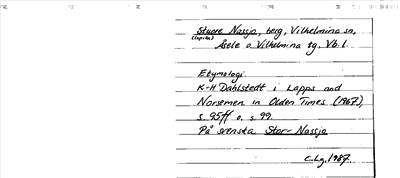 Stuore Nassja, berg, Vilhelmina sn,
(lapska)
Åsele o Vilhelmina tg. Vb. l.
Etymologi.
K-H Dahlstedt i Lapps and
Norsemen in Olden Times (1967),
s. 95ff o. s. 99.
På svenska Stor-Nassja
C.Lg. 1987